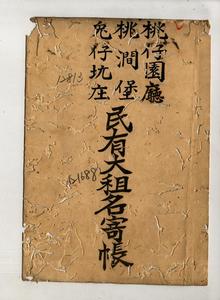 桃仔園廳
桃澗堡
兔仔坑庄
民有大租名寄帳
12813